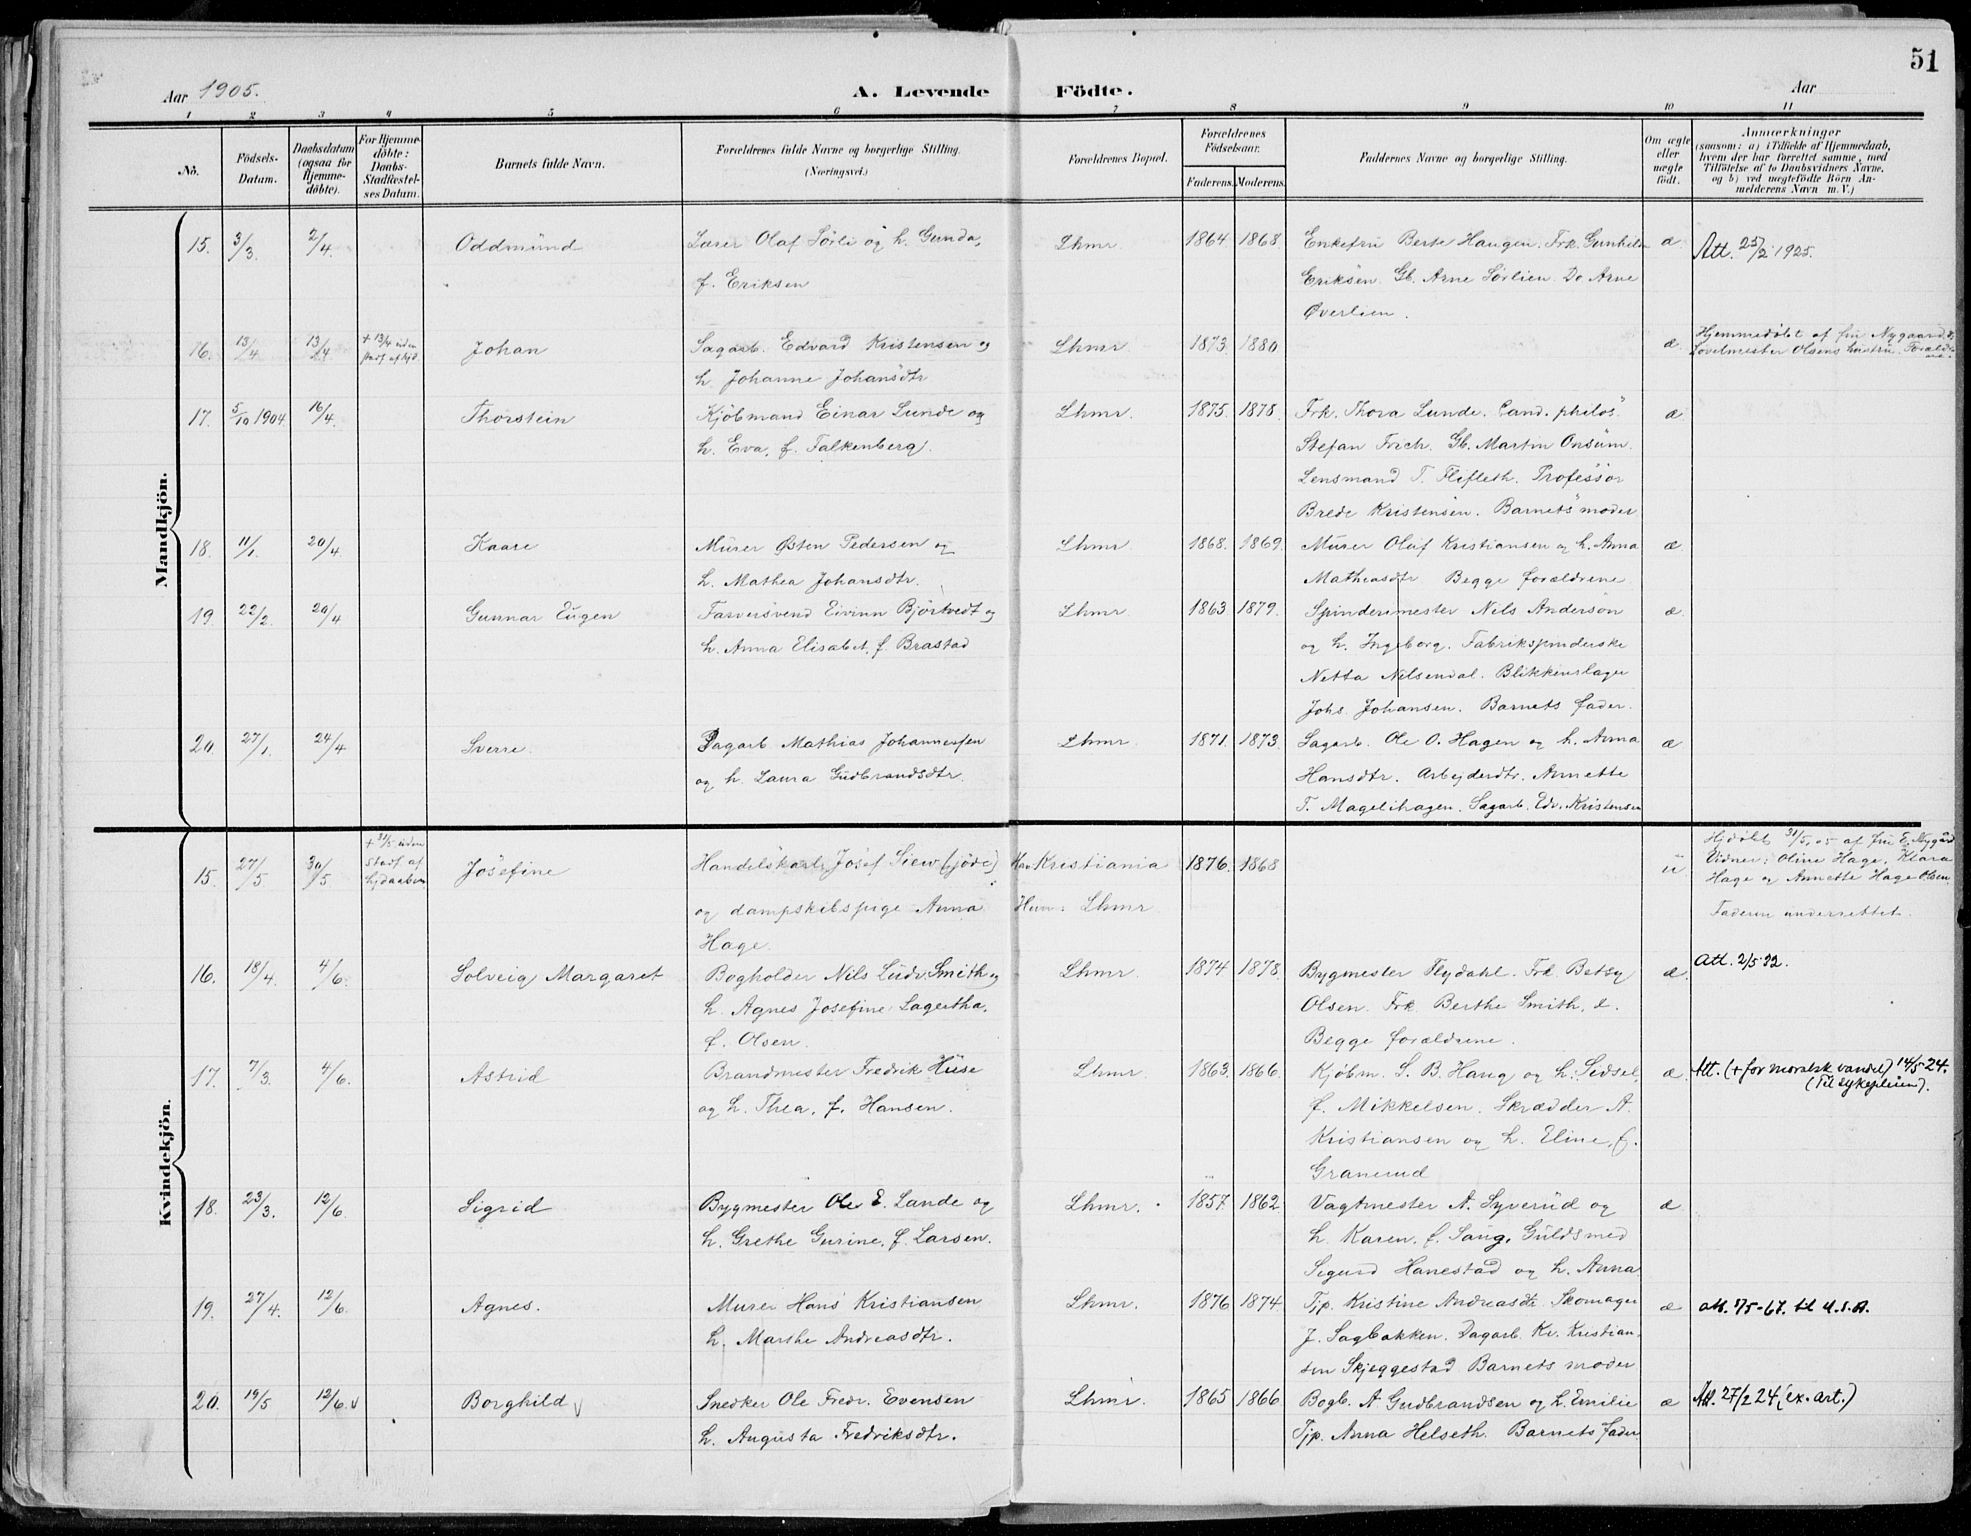 51
Aar 1905. A. Levende Födte. Aar
1 2 3 4 5 6 7 8 9 10 11
No. Födsels-Datum. Daabsdatum (ogsaa for Hjemmedöbte). For Hjemmedöbte: Daabs-Stadfestelses Datum. Barnets fulde Navn. Forældrenes fulde Navne og borgerlige Stilling. (Næringsvei.) Forældrenes Bopæl. Forældrenes Födselsaar. Faderens. Moderens. Faddernes Navne og borgerlige Stilling. Om ægte eller uægte födt. Anmærkninger (saasom: a) i Tilfælde af Hjemmedaab, hvem der har forrettet samme, med Tilföielse af to Daabsvidners Navne, og b) ved uægtefödte Börn Anmelderens Navn m. V.)
Mandkjön.
15. 3/3. 2/4. Oddmund Lærer Olaf Sörli og h. Gunda, Lhmr. 1864. 1868. Enkefru Berte Haugen. Frk. Gunhild æ. Att. 25/2 1925.
f. Eriksen Eriksen. Gb. Arne Sörlien. Do Arne
Øverlien.
16. 13/4. 13/4 + 13/4 uden stadf. af hjd. Johan Sagarb. Edvard Kristensen og Lhmr. 1873. 1880 æ. Hjemmedøbt af fru Nygaard &
h. Johanne Johansdtr Olsens hustru.
17. 5/10 1904. 16/4. Thorstein Kjöbmand Einar Lunde og Lhmr. 1875. 1878. Frk. Thora Lunde. Cand. philos. æ
h. Eva, f. Falkenberg. Stefan Frich. Gb. Martin Onsum.
Lensmand T. Flifleth. Professor
Brede Kristensen. Barnets moder
18. 11/1. 20/4 Kaare Murer Østen Pedersen og Lhmr 1868. 1869. Murer Oluf Kristiansen og h. Anna æ
h. Mathea Johansdtr. Mathiasdtr Begge forældrene
19. 22/2. 20/4 Gunnar Eugen Farversvend Eivinn Björtvedt og Lhmr 1863 1879. Spindermester Nils Anderson æ.
h. Anna Elisabet, f. Brastad og h. Ingeborg. Fabrikspinderske
Netta Nilsendal. Blikkenslager
Johs. Johansen. Barnets fader.
20. 27/1. 24/4 Sverre. Dagarb. Mathias Johannessen Lhmr. 1871. 1873. Sagarb. Ole O. Hagen og h. Anna æ
og h. Laura Gudbrandsdtr. Hansdtr. Arbejderdtr. Annette
T. Magelihagen. Sagarb. Edv. Kristensen
Kvindekjön.
15. 27/5 30/5 + 31/5 uden Stadf. af hjdaaben Josefine Handelskarl Josef Siew (jöde) Han Kristiania 1876. 1868 u Hjdøbt 31/5 05 af fru E. Nygård
og dampskibspige Anna Hun: Lhmr Vidner: Oline Hage, Klara
Hage. Hage og Annette Hage Olsen.
Faderen underrettet.
16. 18/4. 4/6. Solveig Margaret Bogholder Nils Ludv. Smith og Lhmr. 1874 1878. Bygmester Flydahl. Frk. Betsy æ. Att. 2/5 32.
h. Agnes Josefine Lagertha, Olsen. Frk. Berthe Smith, d.
f. Olsen. Begge forældrene.
17. 7/3. 4/6. Astrid Brandmester Fredrik Huse Lhmr. 1863. 1866. Kjöbm. S. B. Haug og h. Sidsel, æ. Att. (+ for moralsk vandel) 14/5-24.
og h. Thea, f. Hansen. f. Mikkelsen. Skrædder A. (Til sykepleien).
Kristiansen og h. Eline, f.
Granerud
18. 23/3. 12/6. Sigrid Bygmester Ole E. Lande og Lhmr. 1857. 1862. Vagtmester A. Syverud og æ
h. Grethe Gurine, f. Larsen. h. Karen, f. Saug, Guldsmed
Sigurd Hanestad og h. Anna
19. 27/4. 12/6. Agnes. Murer Hans Kristiansen Lhmr. 1876 1874. Tjp. Kristine Andreasdtr. Skomager æ att. 7/5-67. til U.S.A.
h. Marthe Andreasdtr. J. Sagbakken. Dagarb. Kr. Kristian-
sen Skjeggestad Barnets moder
20. 19/5 12/6. Borghild Snedker Ole Fredr. Evensen Lhmr. 1865 1866. Bogb. A Gudbrandsen og h. Emilie æ Att. 27/2 24 (ex. art.)
h. Augusta Fredriksdtr. Tjp. Anna Helseth. Barnets fader.